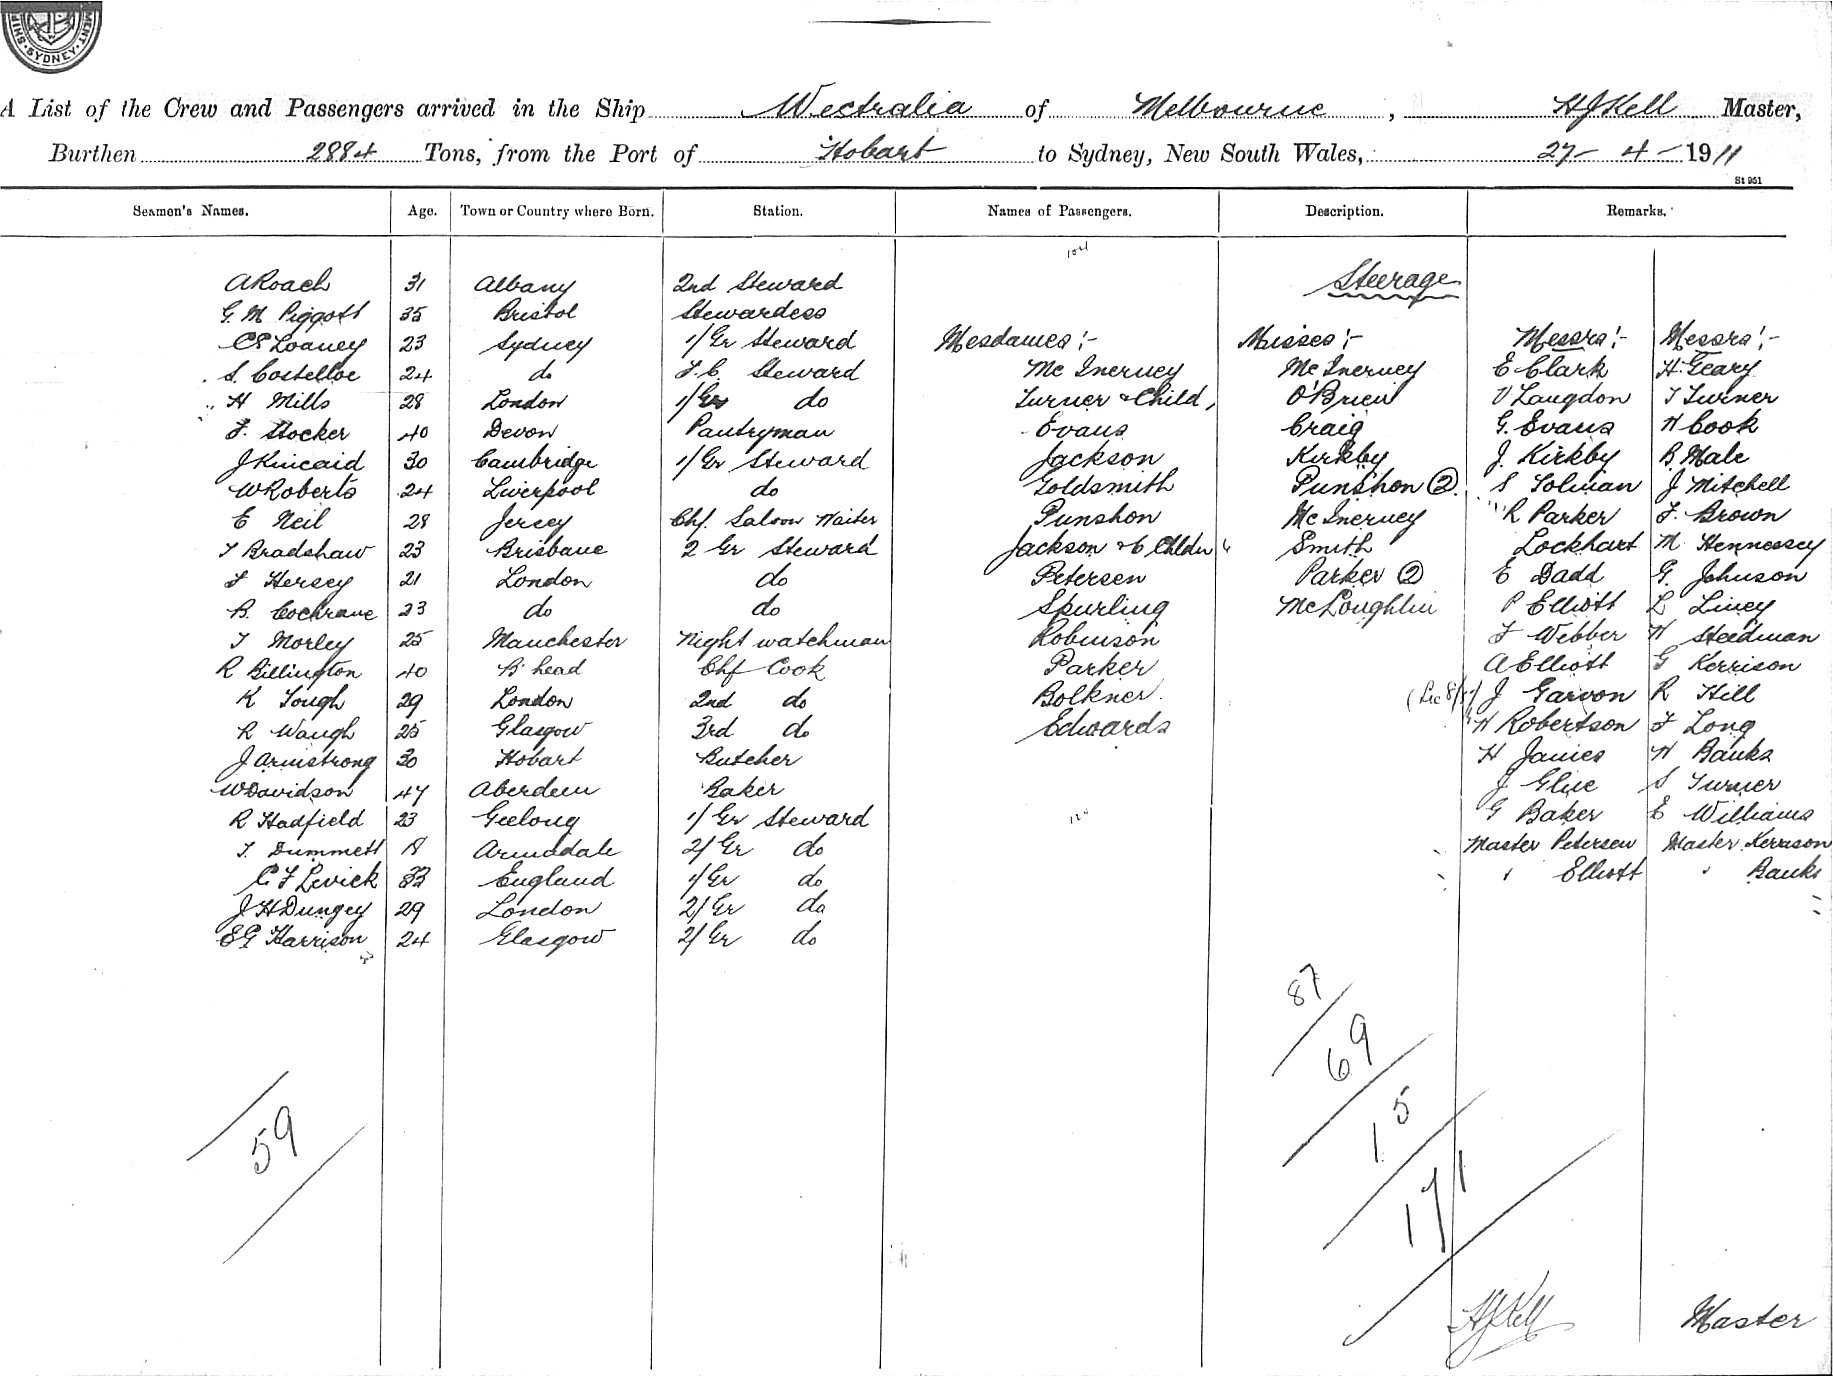 SYDNEY
A List of the Crew and Passengers arrived in the Ship Westralia of Melbourne, H J Kell Master,
Burthen 2884 Tons, from the Port of Hobart to Sydney, New South Wales, 27 - 4 - 1911
St 951
Seamen's Names. Age. Town or Country where Born. Station. Names of Passengers. Description. Remarks.
A Roach 31 Albany 2nd Steward Steerage
G. M. Piggott 35 Bristol Stewardess
C E Loaney 23 Sydney 1/Gr Steward Mesdames :- Misses :- Messrs :- Messrs :-
S. Costelloe 24 do F. C. Steward Mc Inerney Mc Inerney E Clark H. Geary
H Mills 28 London 1/Gr do Turner & Child, O'Brien V Langdon T Turner
F. Stocker 40 Devon Pantryman Evans Craig G. Evans H Cook
J Kincaid 30 Cambridge 1/Gr Steward Jackson Kirkby J. Kirkby B. Male
W Roberts 24 Liverpool do Goldsmith Punshon 2 S Solman J Mitchell
E Neil 28 Jersey Chf. Saloon Waiter Punshon Mc Inerney R Parker F. Brown
T Bradshaw 23 Brisbane 2 Gr Steward Jackson & 6 Childn Smith Lockhart M Hennessey
F Hersey 21 London do Petersen Parker 2 E Dadd G. Johnson
B. Cochrane 23 do do Spurling McLoughlin P Elliott L Liney
T Morley 25 Manchester Night watchman Robinson F Webber H Steedman
R Billington 40 B'head Chf Cook Parker A Elliott G Kerrison
K Tough 29 London 2nd do Bolkner. J Garvon R Hill
R Waugh 25 Glasgow 3rd do Edwards H Robertson F Long
J Armstrong 30 Hobart Butcher H James H Banks
W Davidson 47 Aberdeen Baker J Glue S Turner
R Hadfield 23 Geelong 1/Gr Steward G Baker E Williams
T. Dummett 18 Armadale 2/Gr do Master Petersen Master Kerrison
C F Levick 33 England 1/Gr do " Elliott " Banks
J H Dungey 29 London 2/Gr do
E G Harrison 24 Glasgow 2/Gr do
87
69
59
15
171
H J Kell Master